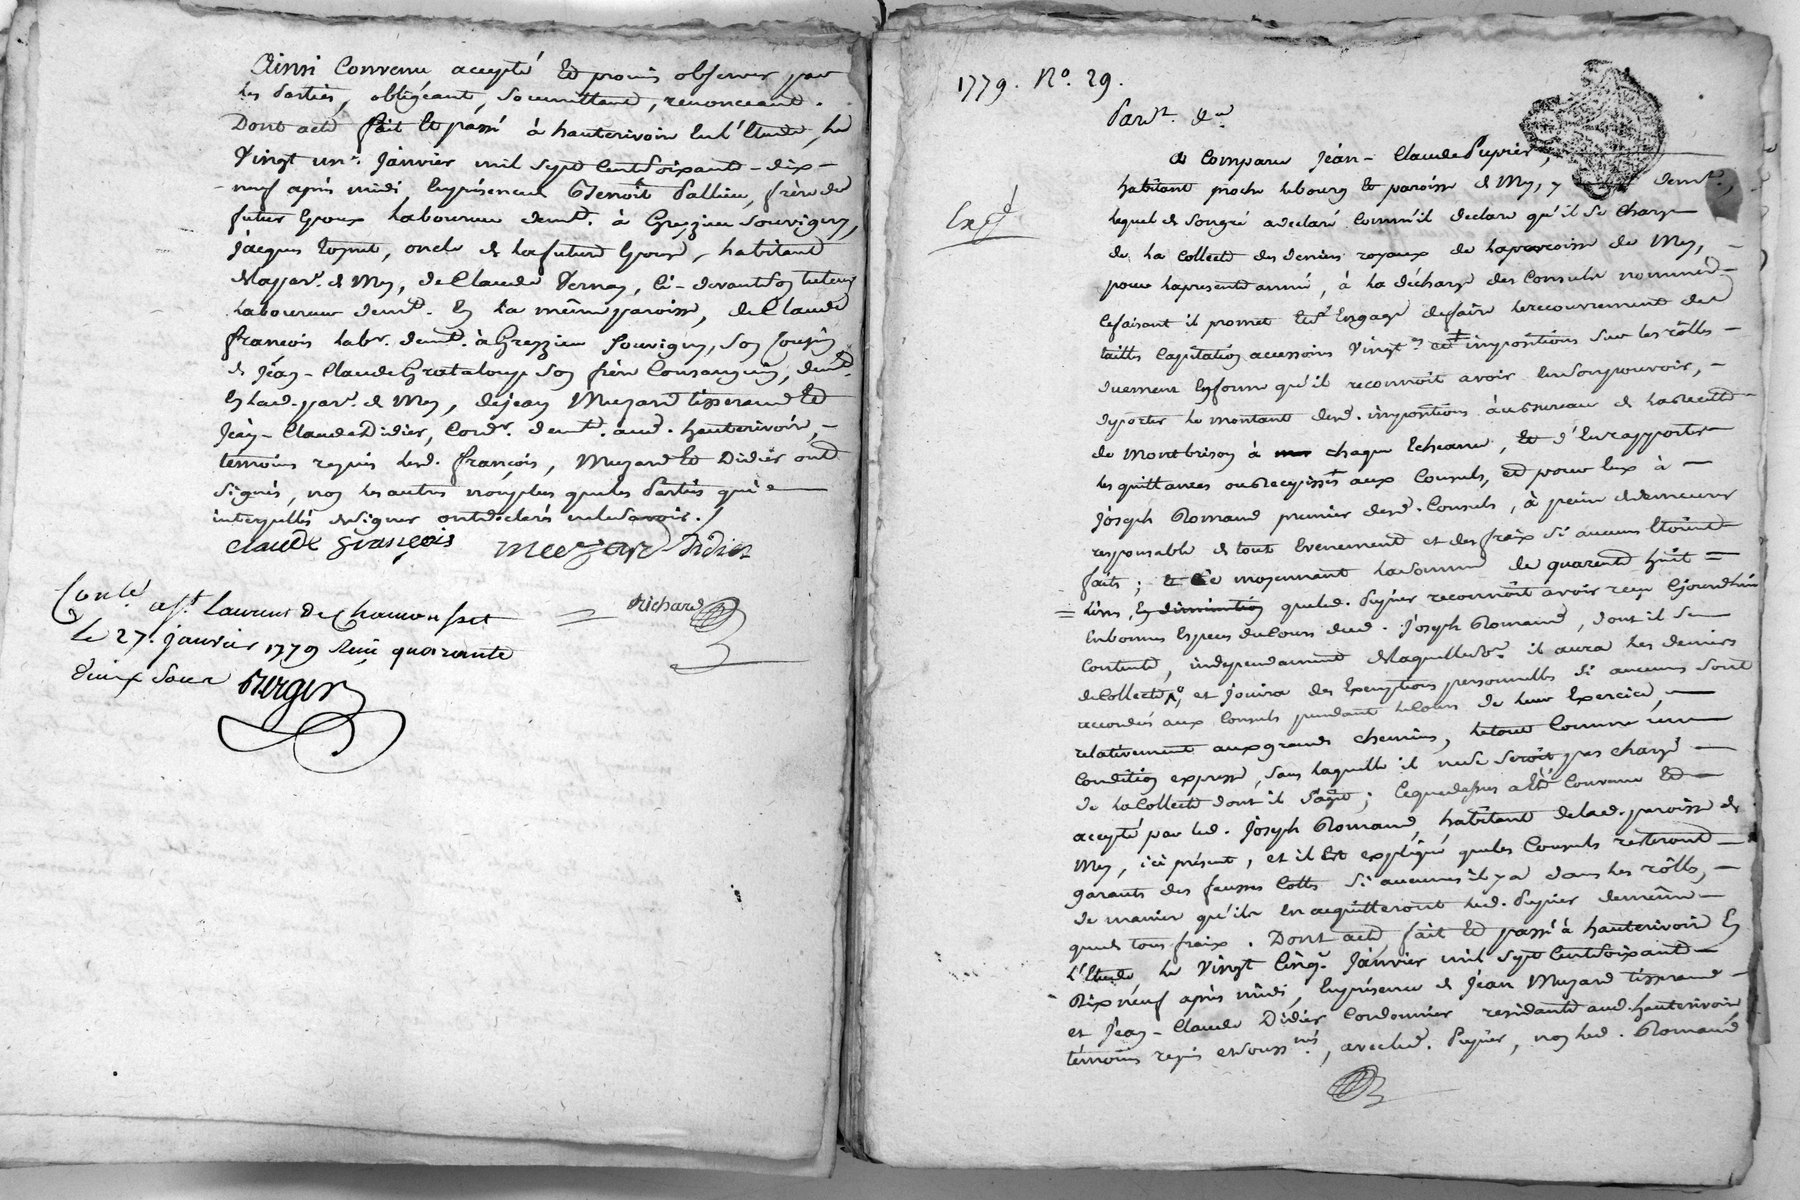 Ainsi Convenu accepté et promis observer par
les Parties, obligeant, soumettant, renonceant.
Dont acte fait et passé à hauterivoire en l'Etude, le
Vingt un.e Janvier mil sept Cent Soixante-dix-
-neuf après midi, En présence Benoît Pallieu, frère du
futur Epoux laboureur demt. à Grezzieu Souvigny,
Jacques , oncle de la future Epouse, habitant
de Mys, de Claude Vernay, Ci-devant son tuteur
laboureur demt. En la même paroisse, de Claude
françois labr. demt. à Grezzieu Souvigny, son Cousin
de Jéan-Claude Grataloup son frère Consanguin, demt.
En lad. par. de Mys, de jean Muzard tisserand et
Jéan-Claude Didier, Cordr. demt. aud. hauterivoire,-
témoins requis lesd. françois, Muzard et Didier ont
Signés, non les autres non plus que les Parties qui
interpellés de signer ont déclarés ne le savoir./
Claude françois Muzard Didier
Richard
Conlé. à St Laurent de Chamousset
le 27. janvier 1779 Reçu quarante
deux sous Berger
1779. No. 29.
Par dt. de
Expd
a Comparu Jéan-Claude Pupier,
habitant proche le bourg et paroisse de Mys, y demt.,
lequel de son gré a déclaré Comm'il déclare qu'il se Charge
de la Collecte des deniers royaux de la paroisse de Mys,-
pour la presente année, à la décharge des Consuls nommés-
Ce faisant il promet et s'Engage de faire le recouvrement des
tailles Capitation accessoires Vingt.es et impositions sur les rôlles-
duement En forme qu'il reconnoît avoir en son pouvoir,-
de porter le montant desd. impositions au Bureau de la Recette-
de Montbrison à chaque Echeance, et d'En rapporter
les quittances ou Recepissés aux Consuls, et pour Eux à-
Joseph Romand premier desd. Consuls, à peine de demeurer
responsable de tout Evenement et des fraix si aucuns Etoient
faits; et Ce moyennant la somme de quarente huit=
=livres, En diminution que led. Pupier reconnoît avoir reçu Cejourd'hui
En bonnes Espèces du Cours dud. Joseph Romand, dont il se
Contente, independament de laquelle som.e il aura les deniers
de Collecte, et jouira des Exemptions personnelles si aucunes sont
accordées aux Consuls pendant le Cours de leur Exercice,-
relativement aux grands chemins, le tout Comme une
Condition expresse, sans laquelle il ne se seroit pas chargé-
de la Collecte dont il s'agit; Ce que dessus a été Convenu et-
accepté par led. Joseph Romand habitant de lad. paroisse de
Mys, ici présent, et il Est expliqué que les Consuls resteront-
garants des fausses Cottes si aucunes il y a dans les rôlles,-
de manière qu'ils En acquitteront led. Pupier de même-
que de tous fraix. Dont acte fait et passé à hauterivoire En
l'Etude le Vingt Cinq.e Janvier mil sept Cent Soixante-
Dix neuf après midi, En présence de Jéan Muzard tisserand-
et Jéan-Claude Didier Cordonnier residants aud. hauterivoire
témoins requis et soussnés., avec led. Pupier, non led. Romand